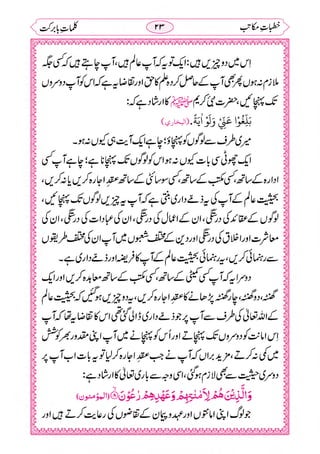 خطباتِ مکاتب ۲۳ کلماتِ بابرکت
اِس میں دو چیزیں ہیں: ایک تو یہ کہ آپ عالم ہیں، آپ چاہے کسی جگہ
ملازم نہ ہوں پھر بھی آپ کے حاصل کردہ علم کا حق اور تقاضا یہ ہے کہ اس کو آپ دوسروں
تک پہنچائیں، حضرت نبی کریم ﷺ کا ارشاد ہے کہ:
بَلِّغُوْا عَنِّیْ وَلَوْ اٰیَةً. (البخاری)
میری طرف سے لوگوں کو پہنچاؤ؛ چاہے ایک آیت ہی کیوں نہ ہو۔
ایک چھوٹی سی بات ہی کیوں نہ ہو اس کو لوگوں تک پہنچانا ہے؛ چاہے آپ کسی
ادارہ کے ساتھ، کسی مکتب کے ساتھ، کسی سوسائٹی کے ساتھ عقدِ اجارہ کریں یا نہ کریں،
بحیثیت عالم کے آپ کی یہ ذمے داری بنتی ہے کہ آپ یہ چیزیں لوگوں تک پہنچائیں،
لوگوں کے عقائد کی درستگی، ان کے اعمال کی درستگی، ان کی عبادات کی درستگی، ان کی
معاشرت اور اخلاق کی درستگی اور دین کے مختلف شعبوں میں آپ ان کی مختلف طریقوں
سے رہنمائی کریں، یہ رہنمائی بحیثیت عالم کے آپ کا فریضہ اور ذمے داری ہے۔
دوسرا یہ کہ آپ کسی کمیٹی کے ساتھ، کسی مکتب کے ساتھ معاہدہ کریں اور ایک
گھنٹہ، دو گھنٹہ، چار گھنٹہ پڑھانے کا عقدِ اجارہ کریں، یہ دو چیزیں ہوگئیں کہ بحیثیت عالم کے
اللہ تعالیٰ کی طرف سے آپ پر جو ذمے داری ڈالی گئی تھی اس کا تقاضا یہ تھا کہ آپ
اس امانت کو دوسروں تک پہنچاتے اور اُس کو پہنچانے میں آپ اپنی مقدور بھر کوشش
میں کمی نہ کرتے، مزید براں آپ نے جب عقدِ اجارہ کر لیا تو یہ بات اب آپ پر
دوسری حیثیت سے بھی لازم ہوگئی، اسی وجہ سے باری تعالیٰ کا ارشاد ہے:
وَالَّذِیْنَ هُمْ لِاَمٰنٰتِهِمْ وَعَهْدِهِمْ رٰعُوْنَ ۝۸ (المؤمنون)
جو لوگ اپنی امانتوں اور عہد و پیمان کے تقاضوں کی رعایت کرتے ہیں اور